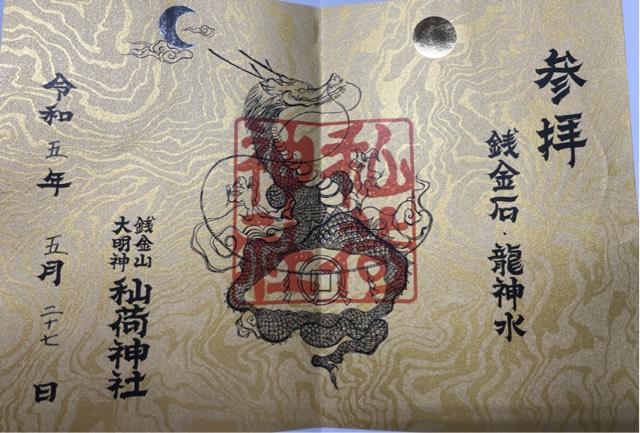 參拝
銭金石・龍神水
銭金山
大明神
秈荷神社
令和五年 五月二十七日